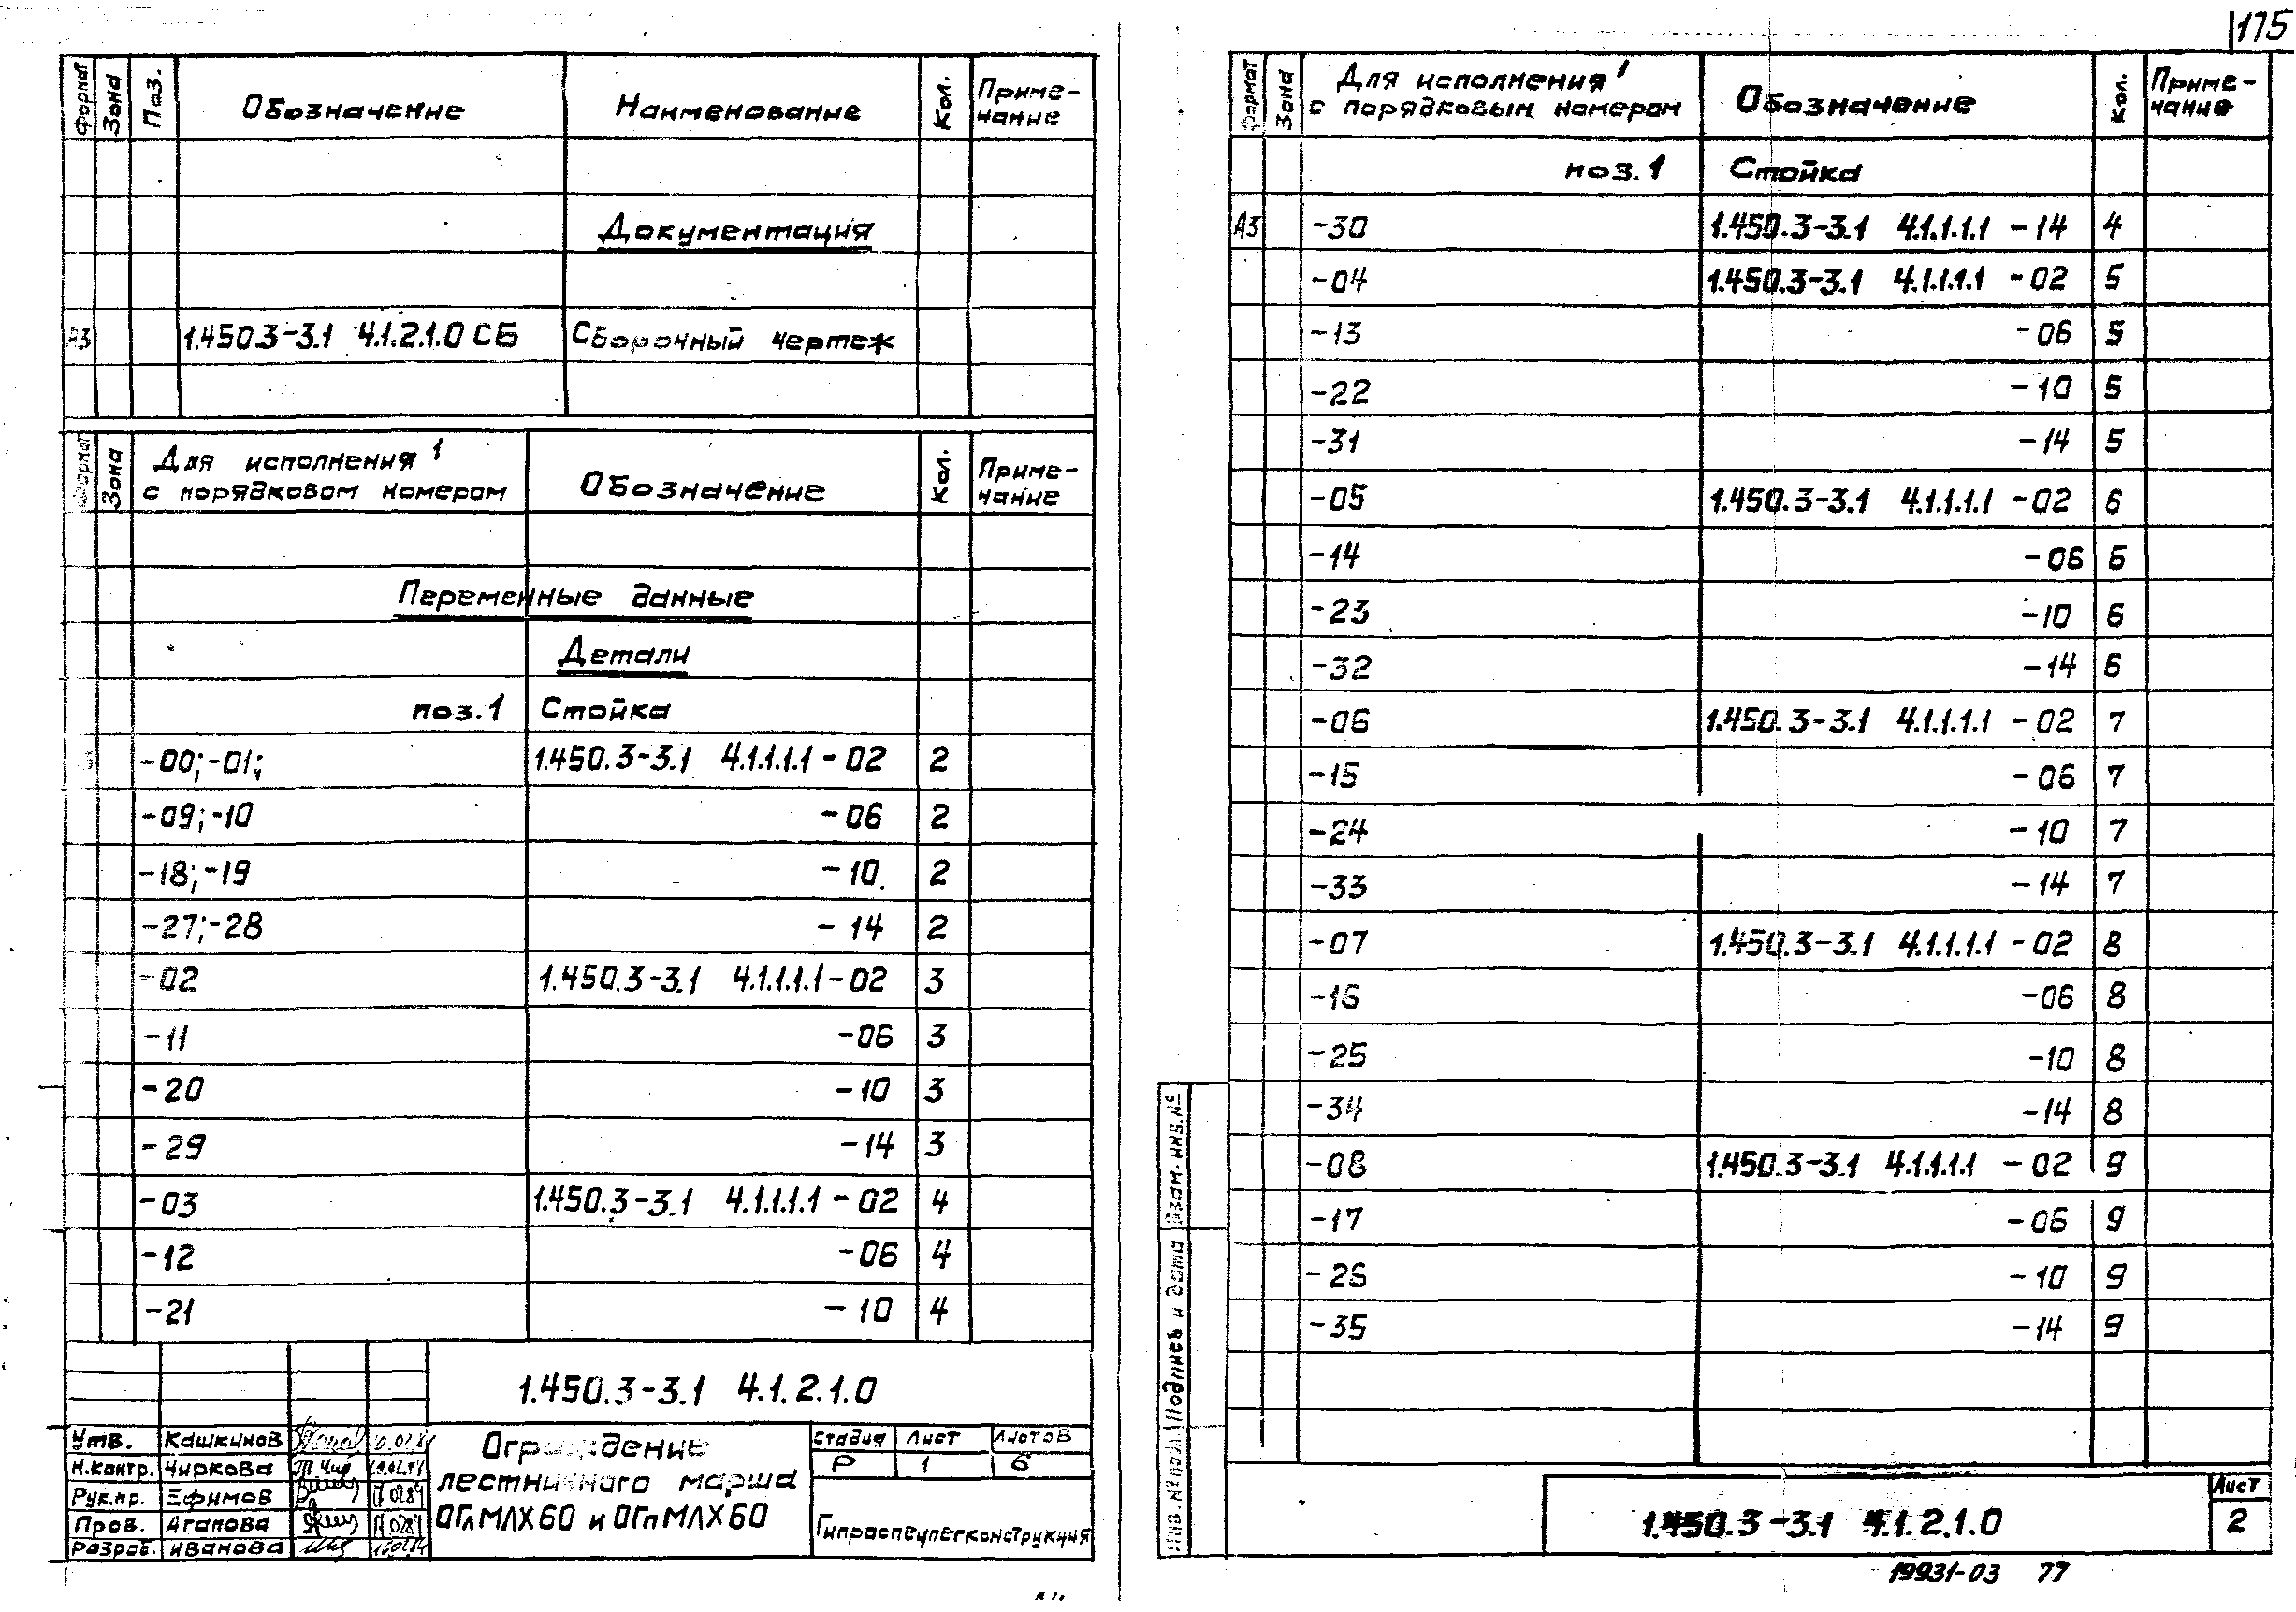 175
Формат Зона Поз. Обозначение Наименование Кол. Приме-
чание
Документация
А3 1.450.3-3.1 4.1.2.1.0 СБ Сборочный чертеж
Формат Зона Для исполнения¹ Обозначение Кол. Приме-
с порядковом номером чание
Переменные данные
Детали
поз.1 Стойка
-00;-01; 1.450.3-3.1 4.1.1.1.1-02 2
-09;-10 -06 2
-18;-19 -10 2
-27;-28 -14 2
-02 1.450.3-3.1 4.1.1.1.1-02 3
-11 -06 3
-20 -10 3
-29 -14 3
-03 1.450.3-3.1 4.1.1.1.1-02 4
-12 -06 4
-21 -10 4
1.450.3-3.1 4.1.2.1.0
Утв. Кашкинов
Н.контр. Чиркова
Рук.пр. Ефимов
Пров. Агапова
Разраб. Иванова
Ограждение
лестничного марша
ОГлМЛХ60 и ОГпМЛХ60
Стадия Лист Листов
Р 1 6
Гипроспецлегконструкция
Формат Зона Для исполнения¹ Обозначение Кол. Приме-
с порядковым номером чание
поз.1 Стойка
А3 -30 1.450.3-3.1 4.1.1.1.1-14 4
-04 1.450.3-3.1 4.1.1.1.1-02 5
-13 -06 5
-22 -10 5
-31 -14 5
-05 1.450.3-3.1 4.1.1.1.1-02 6
-14 -06 6
-23 -10 6
-32 -14 6
-06 1.450.3-3.1 4.1.1.1.1-02 7
-15 -06 7
-24 -10 7
-33 -14 7
-07 1.450.3-3.1 4.1.1.1.1-02 8
-16 -06 8
-25 -10 8
-34 -14 8
-08 1.450.3-3.1 4.1.1.1.1-02 9
-17 -06 9
-26 -10 9
-35 -14 9
Инв.№ подл. Подпись и дата Взам.инв.№
1.450.3-3.1 4.1.2.1.0
Лист
2
19931-03 77